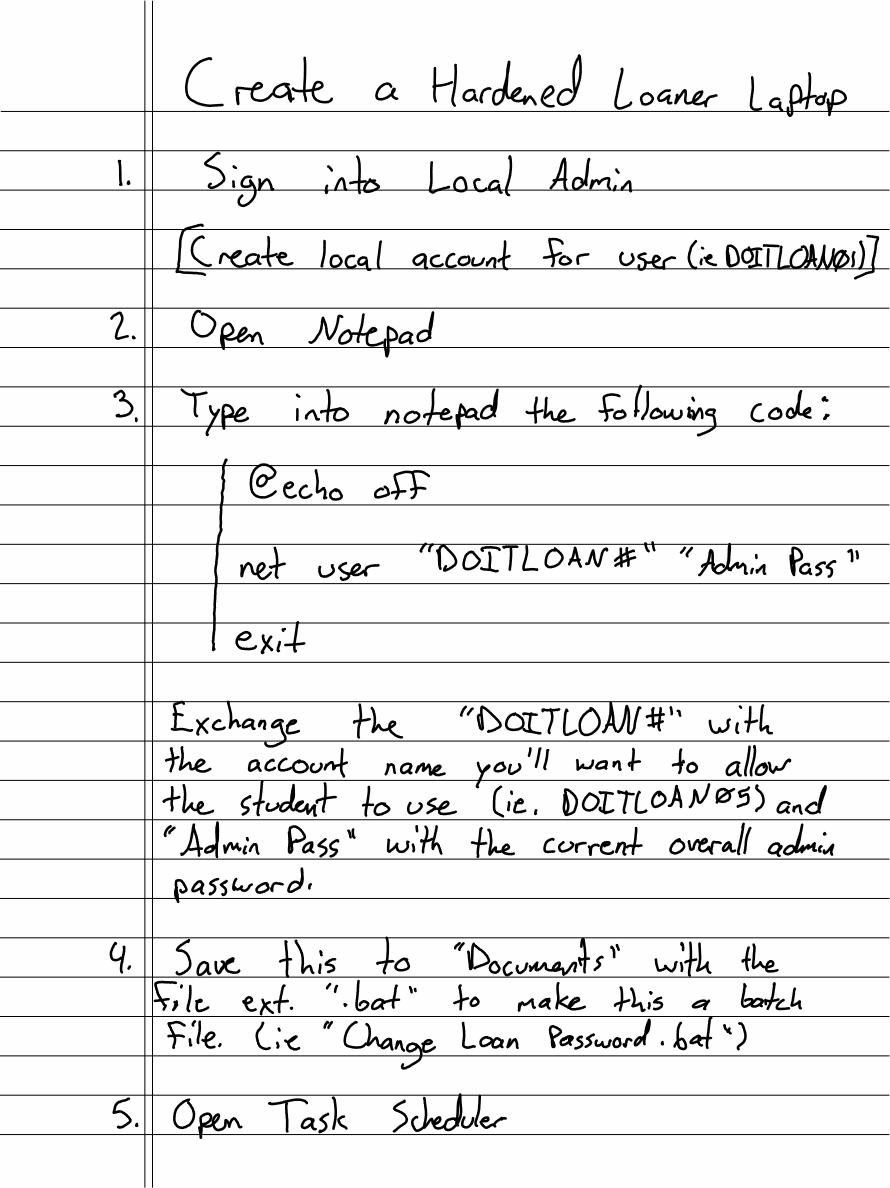 Create a Hardened Loaner Laptop
1. Sign into Local Admin
[Create local account for user (ie DOITLOANØ1)]
2. Open Notepad
3. Type into notepad the following code:
@echo off
net user "DOITLOAN#" "Admin Pass"
exit
Exchange the "DOITLOAN#" with
the account name you'll want to allow
the student to use (ie. DOITLOANØ5) and
"Admin Pass" with the current overall admin
password.
4. Save this to "Documents" with the
file ext. ".bat" to make this a batch
file. (ie "Change Loan Password.bat")
5. Open Task Scheduler